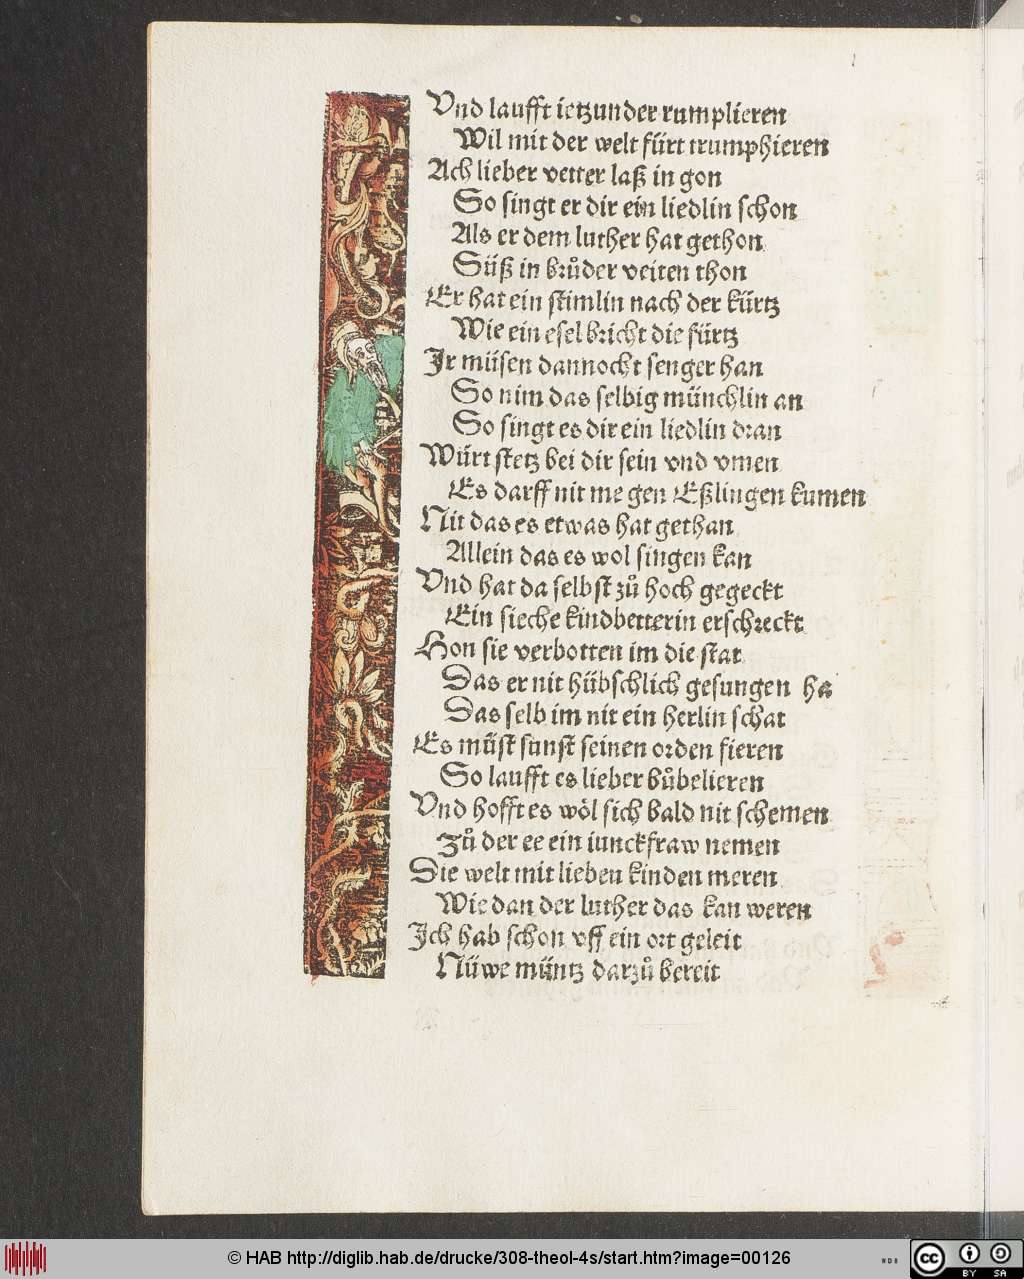 Vnd laufft ietzunder rumplieren
Wil mit der welt fürt trumphieren
Ach lieber vetter laß in gon
So singt er dir ein liedlin schon
Als er dem luther hat gethon
Süß in brůder veiten thon
Er hat ein stimlin nach der kürtz
Wie ein esel bricht die fürtz
Jr müsen dannocht senger han
So nim das selbig münchlin an
So singt es dir ein liedlin dran
Würt stetz bei dir sein vnd vmen
Es darff nit me gen Eßlingen kumen
Nit das es etwas hat gethan
Allein das es wol singen kan
Vnd hat da selbst zů hoch gegeckt
Ein sieche kindbetterin erschreckt
Hon sie verbotten im die stat
Das er nit hübschlich gesungen ha
Das selb im nit ein herlin schat
Es müst sunst seinen orden fieren
So laufft es lieber bůbelieren
Vnd hofft es wöl sich bald nit schemen
Zů der ee ein iunckfraw nemen
Die welt mit lieben kinden meren
Wie dan der luther das kan weren
Jch hab schon vff ein ort geleit
Nüwe müntz darzů bereit
© HAB http://diglib.hab.de/drucke/308-theol-4s/start.htm?image=00126
WDB
cc BY SA